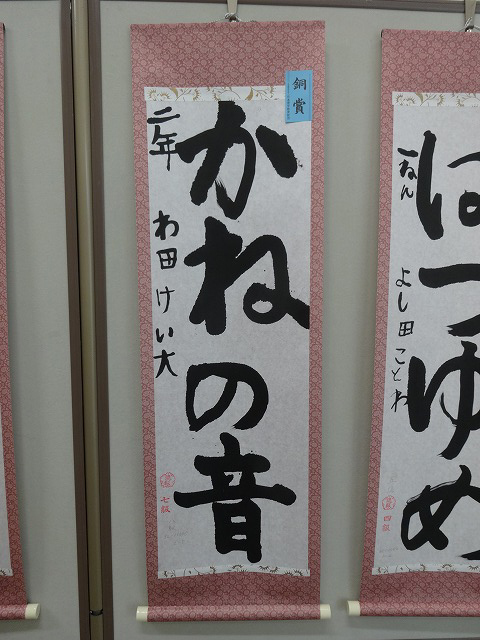 銅賞
かねの音
二年 わ田けい大
七級
はつゆめ
一ねん よし田ことね
四級